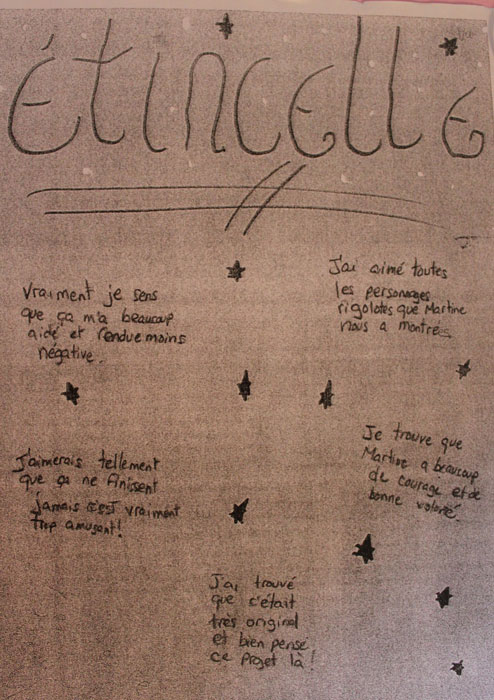 étincelle
Vraiment je sens
que ça m'a beaucoup
aidé et rendue moins
négative.
J'ai aimé toutes
les personnages
rigolotes que Martine
nous a montrés
J'aimerais tellement
que ça ne finissent
jamais c'est vraiment
trop amusant!
Je trouve que
Martine a beaucoup
de courage et de
bonne volonté.
J'ai trouvé
que c'était
très original
et bien pensé
ce projet là!